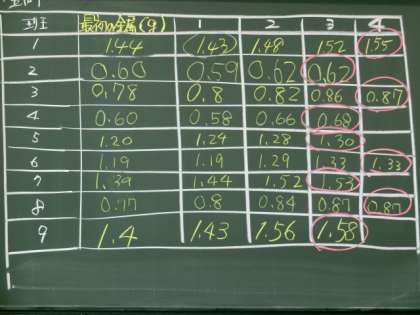 班 最初の金属(g) 1 2 3 4
1 1.44 (1.43) 1.48 1.52 1.55
2 0.60 0.59 0.62 0.62
3 0.78 0.8 0.82 0.86 0.87
4 0.60 0.58 0.66 0.68
5 1.20 1.24 1.28 1.30
6 1.19 1.19 1.29 1.33 1.33
7 1.39 1.44 1.52 1.53
8 0.77 0.8 0.84 0.87 0.87
9 1.4 1.43 1.56 1.58